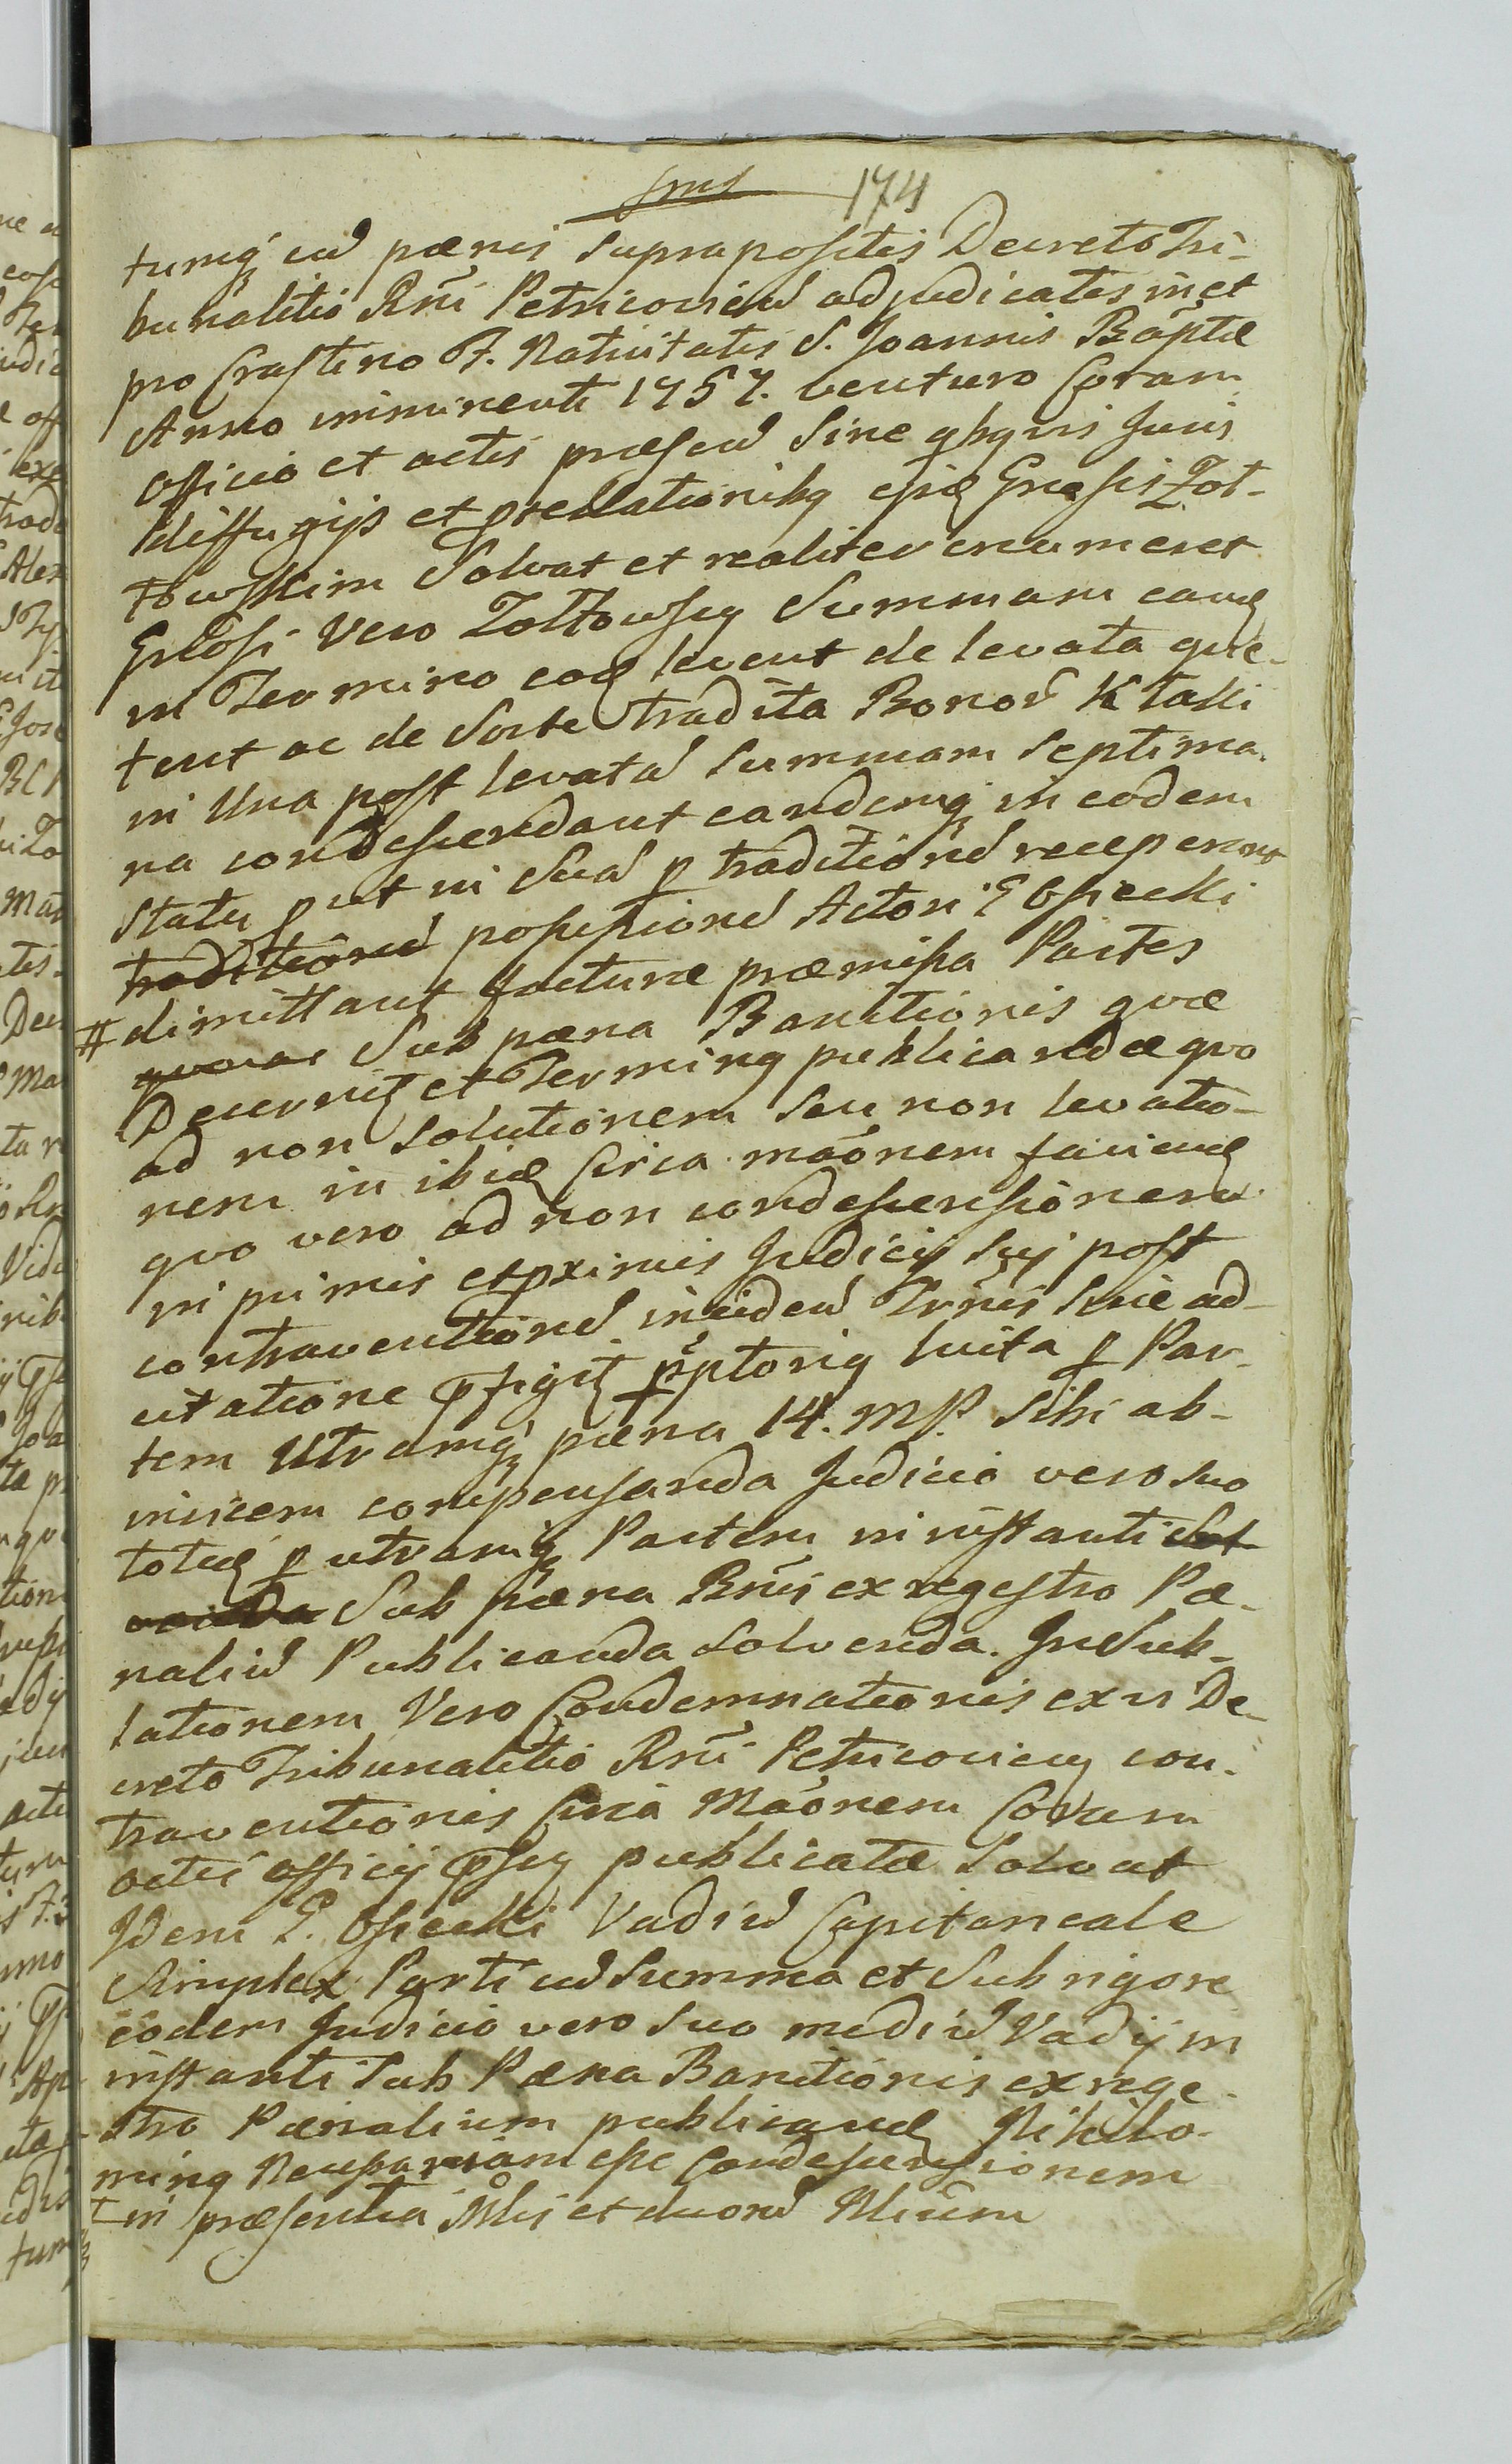 174
tumq́ cu̅ pœnis Supra positis Decreto Tri-
bunalitio Rni̅ Petricovien̅ adjudicatis in et
pro Crastino F. Nativitatis S. Joannis Bapt̅æ
Anno imminenti 1757. venturo Coram
officio et actis præsen̅ Sine qbqvis Juris
diffugijs et prællationibq ejsq Gnesis Zot-
towskim Solvat et realiter enumeret
Grlosi Vero Zoltowscy Summam eanq
in Termino eoq levent de levata qvie-
tent ac de Sorte tradita Bonor̅ Ktaki
in Una post levata̅ Summam Septima-
na condescendant eandemq́ in eodem
Statu put in Sua̅ p traditione̅ receperunt
traditione̅ possessione̅ Actori G Osiecki
# dimittant factura præmissa Partes
Sub pœna Banitionis qvæ
Decernit et Terminq publicandæ qvo
ad non Solutionem Seu non levatio-
nem in ibiq Circa mãonem faciend
qvo vero ad non condescensionem
in primis et pximis Judicijs Suj post
contraventione̅ inciden̅ Trnis Sine ad-
citatione pfigit pptoriq luita p Par-
tem Utramq́ pœna 14. MP. Sibi ab-
invicem compensanda Judicio vero suo
totiq p utramq́ Partem in instanti Sol-
Sub pœna Bnis ex regestro Pœ-
naliu̅ Publicanda Solvenda. In Sub-
lationem Vero Condemnationis ex vi De-
creto Tribunalitio Rni̅ Petricovien con-
traventionis Circa Mãonem Coram
actis officij psen publicatæ Solvat
Idem G. Osiecki Vadiu̅ Capitaneale
Simplex Parti cu̅ Summa et Sub rigore
eodem Judicio vero Suo mediu̅ Vadij in
instanti Sub Pœna Banitionis ex rege-
stro Pœnalium publicand Nihilo-
minq Necessariam esse Condescensionem
in præsentia Mlis et duoru̅ Nlium